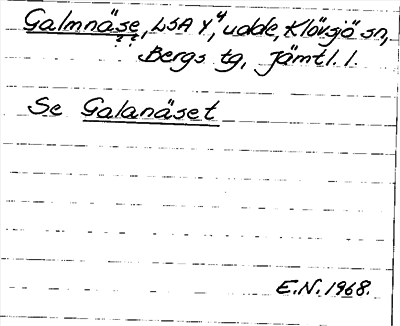 Galmnäse, LSA Y⁴, udde, Klövsjö sn,
? ?
Bergs tg, Jämtl. l.
Se Galanäset
E.N. 1968.